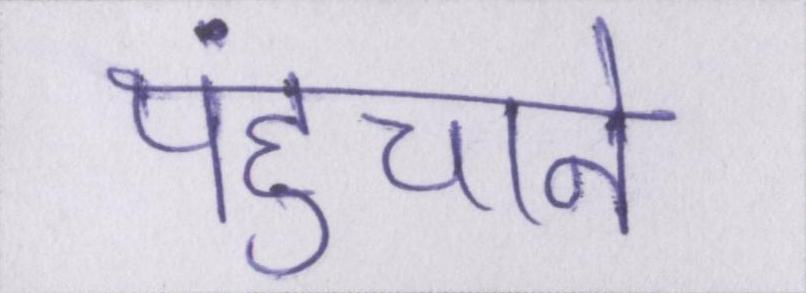 पंहुचाने